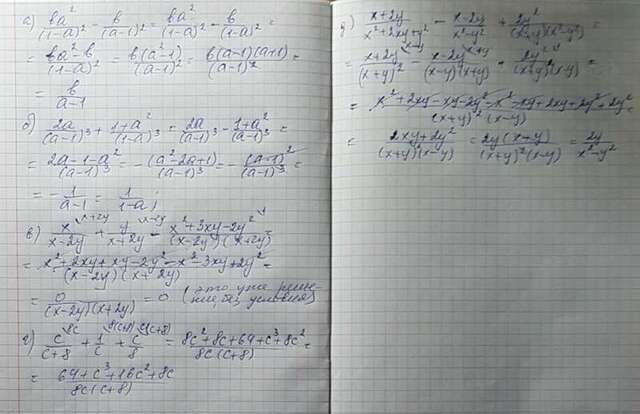 а) ba²/(1-a)² - b/(a-1)² = ba²/(1-a)² - b/(1-a)² =
= ba²-b/(1-a)² = b(a²-1)/(a-1)² = b(a-1)(a+1)/(a-1)² =
= b/a-1
б) 2a/(a-1)³ + 1+a²/(1-a)³ = 2a/(a-1)³ - 1+a²/(a-1)³ =
= 2a-1-a²/(a-1)³ = -(a²-2a+1)/(a-1)³ = -(a-1)²/(a-1)³ =
= -1/a-1 = 1/1-a;
в) x/x-2y + y/x+2y - x²+3xy-2y²/(x-2y)(x+2y) =
= x²+2xy+xy-2y²-x²-3xy+2y²/(x-2y)(x+2y) =
= 0/(x-2y)(x+2y) = 0
г) c/c+8 + 1/c + c/8 = 8c²+8c+64+c³+8c²/8c(c+8) =
= 64+c³+16c²+8c/8c(c+8)
x+2y/x²+2xy+y² - x-2y/x²-y² + 2y²/(x+y)(x²-y²) =
= x+2y/(x+y)² - x-2y/(x-y)(x+y) + 2y²/(x+y)²(x-y) =
= x²+2xy-xy-2y²-x²-xy+2xy+2y²+2y²/(x+y)²(x-y) =
= 2xy+2y²/(x+y)²(x-y) = 2y(x+y)/(x+y)²(x-y) = 2y/x²-y²